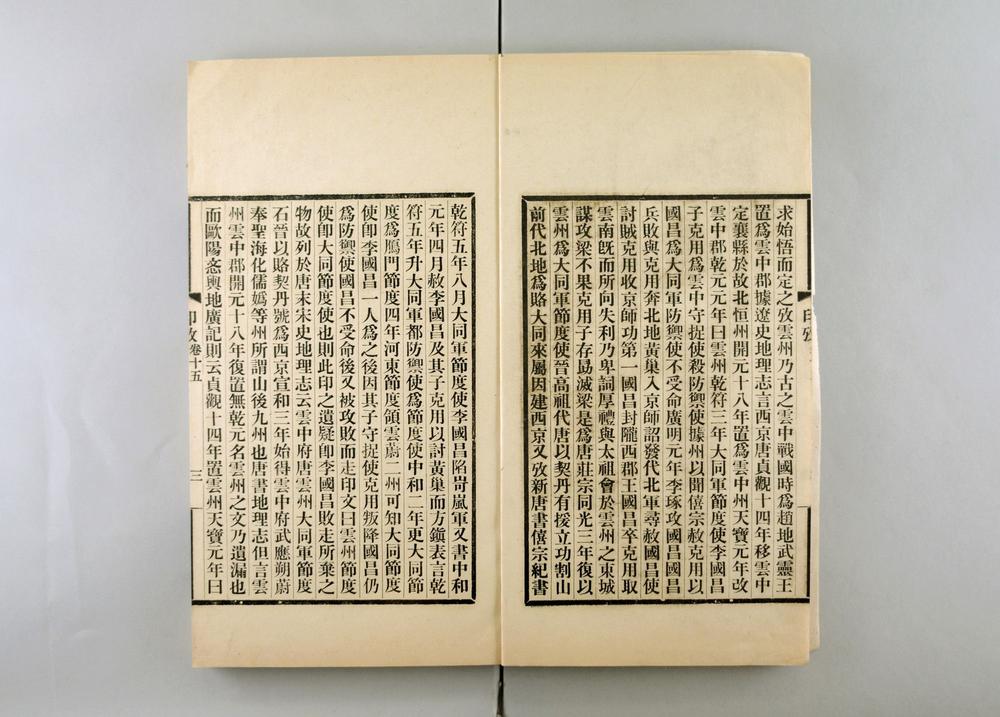 求始悟而定之攷雲州乃古之雲中戰國時爲趙地武靈王
置爲雲中郡據遼史地理志言西京唐貞觀十四年移雲中
定襄縣於故北恒州開元十八年置爲雲中州天寶元年改
雲中郡乾元元年曰雲州乾符三年大同軍節度使李國昌
子克用爲雲中守捉使殺防禦使據州以聞僖宗赦克用以
國昌爲大同軍防禦使不受命廣明元年李琢攻國昌國昌
兵敗與克用奔北地黃巢入京師詔發代北軍尋赦國昌使
討賊克用收京師功第一國昌封隴西郡王國昌卒克用取
雲南旣而所向失利乃卑詞厚禮與太祖會於雲州之東城
謀攻梁不果克用子存勗滅梁是爲唐莊宗同光三年復以
雲州爲大同軍節度使晉高祖代唐以契丹有援立功割山
前代北地爲賂大同來屬因建西京又攷新唐書僖宗紀書
印攷
乾符五年八月大同軍節度使李國昌陷岢嵐軍又書中和
元年四月赦李國昌及其子克用以討黃巢而方鎭表言乾
符五年升大同軍都防禦使爲節度使中和二年更大同節
度爲鴈門節度四年河東節度領雲蔚二州可知大同節度
使卽李國昌一人爲之後因其子守捉使克用叛降國昌仍
爲防禦使國昌不受命後又被攻敗而走印文曰雲州節度
使卽大同節度使也則此印之遺疑卽李國昌敗走所棄之
物故列於唐末宋史地理志云雲中府唐雲州大同軍節度
石晉以賂契丹號爲西京宣和三年始得雲中府武應朔蔚
奉聖海化儒嬀等州所謂山後九州也唐書地理志但言雲
州雲中郡開元十八年復置無乾元名雲州之文乃遺漏也
而歐陽忞輿地廣記則云貞觀十四年置雲州天寶元年曰
印攷卷十五
三